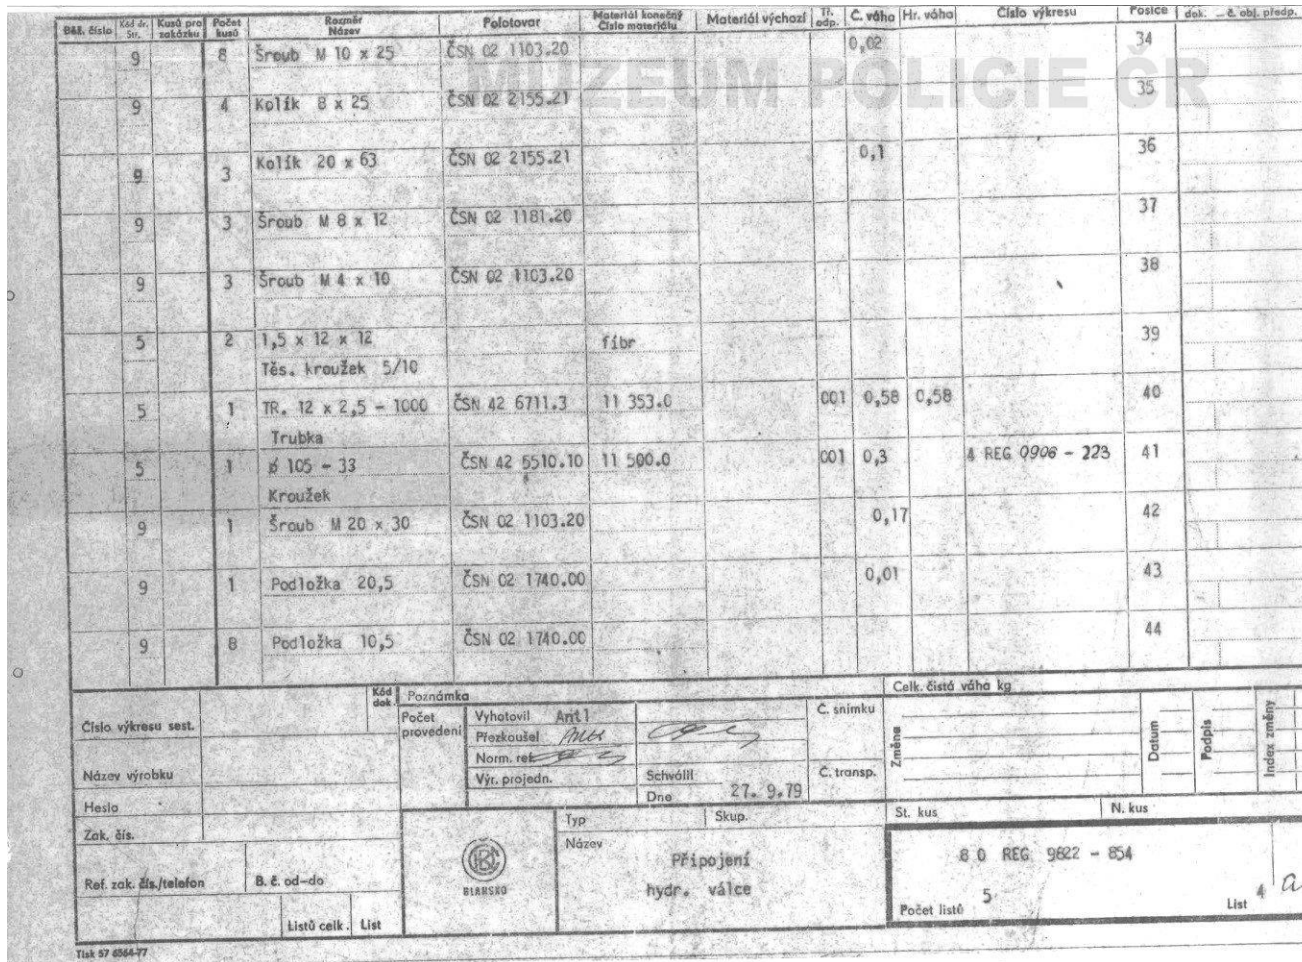 MUZEUM POLICIE ČR
Běž. číslo Kód dr. Str. Kusů pro zakázku Počet kusů Rozměr Název Polotovar Materiál konečný Číslo materiálu Materiál výchozí Tř. odp. Č. váha Hr. váha Číslo výkresu Posice dok. č. obj. předp.
9 8 Šroub M 10 x 25 ČSN 02 1103.20 0,02 34
9 4 Kolík 8 x 25 ČSN 02 2155.21 35
9 3 Kolík 20 x 63 ČSN 02 2155.21 0,1 36
9 3 Šroub M 8 x 12 ČSN 02 1181.20 37
9 3 Šroub M 4 x 10 ČSN 02 1103.20 38
5 2 1,5 x 12 x 12 fíbr 39
Těs. kroužek 5/10
5 1 TR. 12 x 2,5 - 1000 ČSN 42 6711.3 11 353.0 001 0,58 0,58 40
Trubka
5 1 ø 105 - 33 ČSN 42 5510.10 11 500.0 001 0,3 4 REG 0906 - 223 41
Kroužek
9 1 Šroub M 20 x 30 ČSN 02 1103.20 0,17 42
9 1 Podložka 20,5 ČSN 02 1740.00 0,01 43
9 8 Podložka 10,5 ČSN 02 1740.00 44
Číslo výkresu sest.
Kód dok.
Název výrobku
Heslo
Zak. čís.
Ref. zak. čís./telefon B. č. od-do
Listů celk. List
Poznámka
Počet provedení
Vyhotovil Antl
Přezkoušel
Norm. ref.
Výr. projedn. Schválil
Dne 27. 9.79
Č. snímku
Č. transp.
Celk. čistá váha kg
Změna Datum Podpis Index změny
St. kus N. kus
BLANSKO
Typ Skup.
Název
Připojení
hydr. válce
8 0 REG 9822 - 854
Počet listů 5 List 4 a
Tisk 57 6564-77